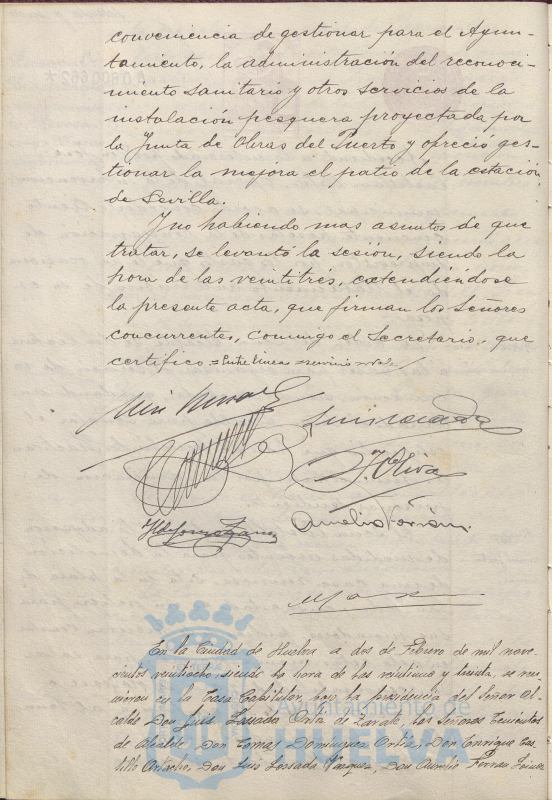 conveniencia de gestionar para el Ayun-
tamiento, la administración del reconoci-
miento sanitario y otros servicios de la
instalación pesquera proyectada por
la Junta de Obras del Puerto y ofreció ges-
tionar la mejora el patio de la estación
de Sevilla.
Y no habiendo mas asuntos de que
tratar, se levantó la sesión, siendo la
hora de las veintitrés, extendiéndose
la presente acta, que firman los Señores
concurrentes, conmigo el Secretario, que
certifico = Entre lineas = servicio = vale
J. Oliva
Aurelio Ferrán
En la Ciudad de Huelva a dos de Febrero de mil nove
cientos veintiocho siendo la hora de las veintiuna y treinta, se reu
nieron en la Casa Capitular, bajo la presidencia del Señor Al
calde Don Luis Ortiz de Zarate, los Señores Tenientes
de Alcalde Don Tomas Dominguez Ortiz, Don Enrique Cas
tillo Don Luis Losada Vazquez, Don Aurelio Ferran
Ayuntamiento de
HUELVA